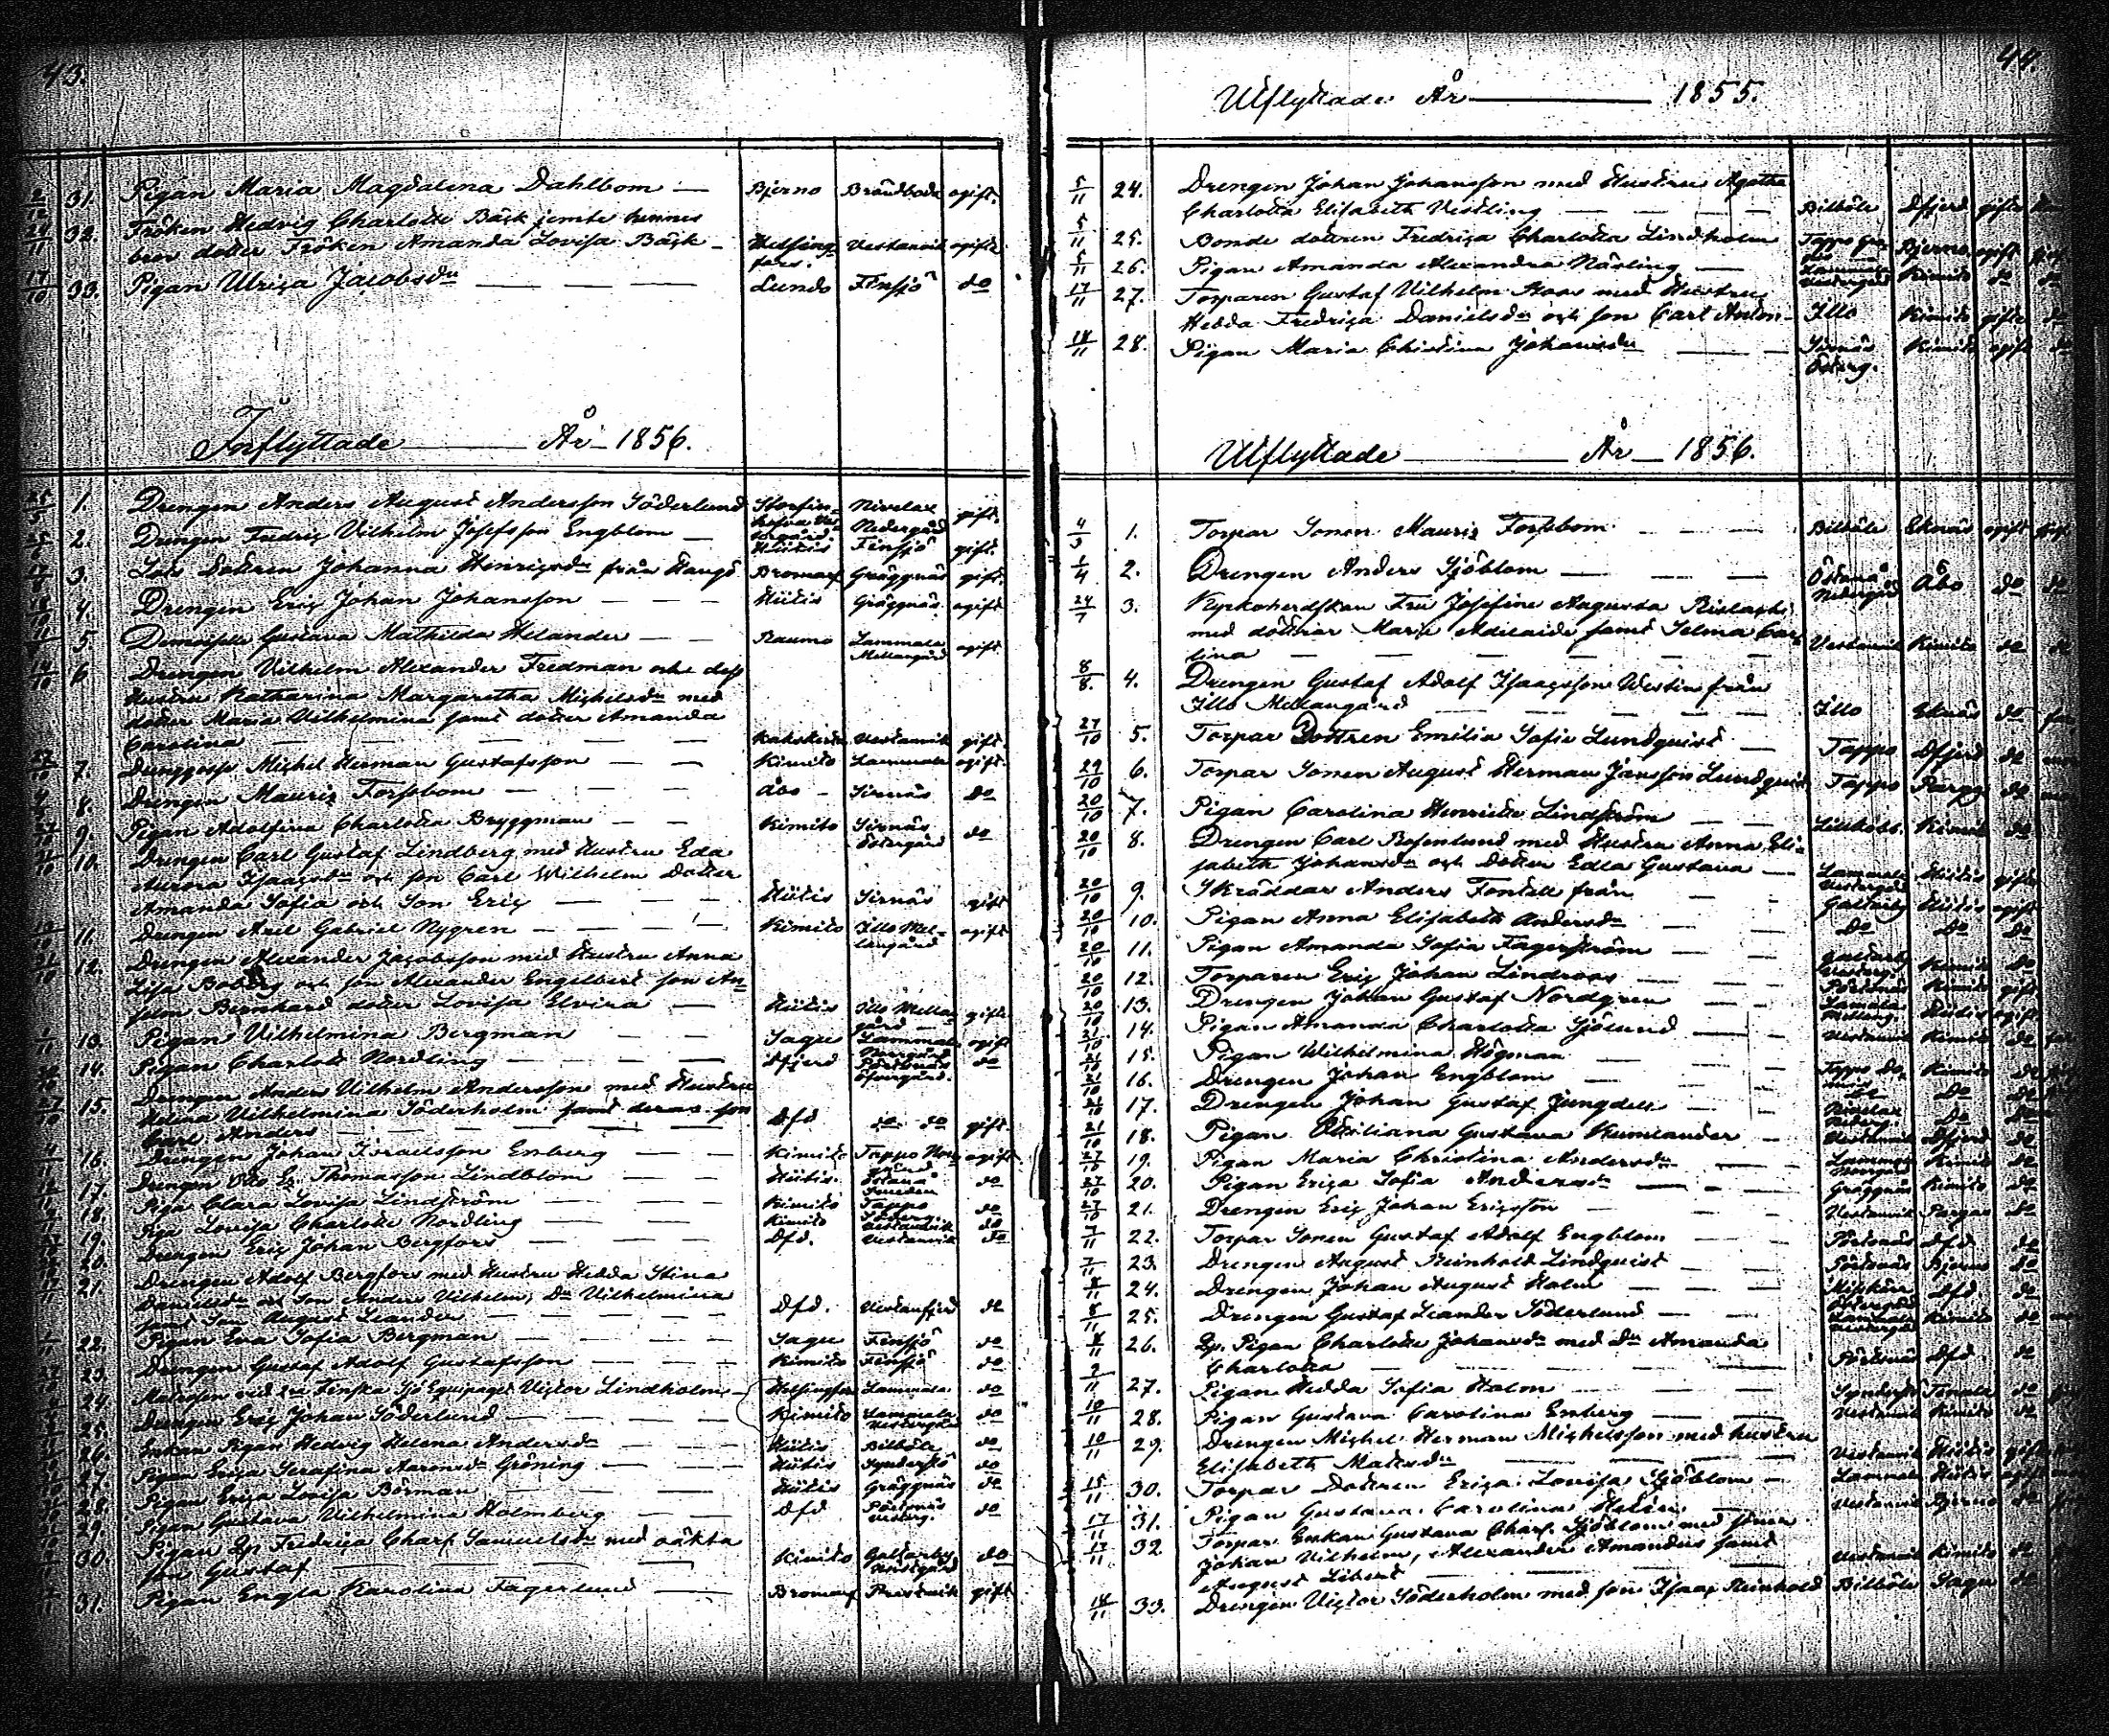 43.
2/12 31. Pigan Maria Magdalena Dahlbom — Bjerno Brändboda ogift.
24/11 32. Fröken Hedvig Charlotte Bäck jemte hennes
bror dotter Fröken Amanda Lovisa Bäck — Helsing- Vestanvik ogifte
fors.
17/10 33. Pigan Ulrica Jacobsdr — — — Lundo Finsjö do
Inflyttade — År — 1856.
1. Drengen Anders August Andersson Söderlund Nivelax gift.
Nedergård
2. Drengen Fredric Vilhelm Josefsson Engblom — Hiitis Finsjö gift.
3. Dottren Johanna Henricsdr från Hangö Bromarf Gräggnäs gift.
4. Drengen Eric Johan Johansson — — — Hiitis Gräggnäs ogift
5. Gustava Mathilda Helander — — Raumo Lammala ogift
Mellangård
14/10 6 Drengen Vilhelm Alexander Fredman och dess
Hustru Katharina Margaretha Michelsdr med
dotter Maria Vilhelmina samt dotter Amanda
Carolina — — — — — Vestanvik gift.
7. Michel Herman Gustafsson — — Kimito Lammala ogift.
8. Drengen Mauriz Forssbom — — — Åbo — Sirnäs do
9. Pigan Adolfina Charlotta Bryggman — — Kimito Sirnäs do
Östergård
10. Drengen Carl Gustaf Lindberg med Hustru Eda
Aurora Isaacsdr och son Carl Wilhelm Dotter
Amanda Sofia och Son Eric — — — Hiitis Sirnäs gift
11. Drengen Axel Gabriel Nygren — — — — Kimito Illo Mel- ogift
langård
12. Drengen Alexander Jacobsson med Hustru Anna
Lisa Boberg och son Alexander Engelbert son An-
Bernhard dotter Lovisa Elvira — Hiitis Illo Mellan- gifte
gård
13. Pigan Vilhelmina Bergman — — Sagu Lammala ogift
Norrgård
14. Pigan Charlott Nordling — — — — Dfjerd Pörtsnäs do
Öfvergård.
27/10 15. Drengen Anders Vilhelm Andersson med Hustru
Helena Vilhelmina Söderholm samt deras son
Carl Anders — — — — — Dfd do do gift.
16. Drengen Johan Israelsson Enberg — — Kimito Tappo Norr- ogift.
gård
17. Drengen Otto Er. Thomasson Lindblom — — Hiitis. Östanå do
18. Piga Clara Lovisa Lindström — — — Kimito Tappo do
19. Piga Lovisa Charlotte Nordling — — — Kimito Vestanvik do
20. Drengen Eric Johan Bergfors — — — Dfd. Vestanvik do
21. Drengen Adolf Bergfors med Hustru Hedda Stina
Danielsdr och Son Anders Vilhelm, Dr Vilhelmina
samt Son August Leander — — — Dfd. Vestanfjerd do
22. Pigan Eva Sofia Bergman — — — — Sagu Finsjö do
23. Drengen Gustaf Adolf Gustafsson — — — Kimito Finsjö do
24. Matrosen vid Finska Sjö Equipaget Victor Lindholm — Helsingfors Lammala do
25. Drengen Eric Johan Söderlund — — — Kimito Lammala do
Vestergård
26. Enkan Pigan Hedvig Helena Andersdr — — — Hiitis Bilböle do
27. Pigan Erica Serafina Aaronsdr Gröning — — — Hiitis Synderstö do
28. Pigan Erica Lovisa Börman — — — Hiitis Gräggnäs do
29. Pigan Gustava Vilhelmina Holmberg — — — Dfd Pörtsnäs do
Vesterg.
30. Pigan Fredrica Charl. Samuelsdr med oäkta
son Gustaf — — — Kimito Galtarby do
Vestgård
31. Pigan Engla Karolina Fagerlund — — Bromarf Prestvik gift
44.
Utflyttade År — 1855.
5/11 24. Drengen Johan Johansson med Hustru Agatha
Charlotta Elisabeth Vestling — — — Bilböle Dfjerd gifte
5/11 25. Bonde dottren Fredrica Charlotta Lindholm Tappo Bjerno ogift
5/11 26. Pigan Amanda Alexandra Näsling — Lammala Kimito do do
Vestergård
17/11 27. Torparen Gustaf Vilhelm Roos med Hustru
Hedda Fredrica Danielsdr och son Carl Anton — Illo Kimito gifte do
18/11 28. Pigan Maria Christina Johansdr — — Sirnäs Kimito ogift do
Österg.
Utflyttade — År — 1856.
4/3 1. Torpar Sonen Mauriz Forssbom — — — Bilböle Ekenäs ogift
1/4 2. Drengen Anders Sjöblom — — — Östanå Åbo do do
Nedergård
24/7 3. Kyrkoherdskan Fru Josefine Augusta Ristachi
med döttrar Maria Adelaide samt Selma Caro-
lina — — — — — Vestanvik Kimito do do
8/8. 4. Drengen Gustaf Adolf Isaacsson Westin från
Illo Mellangård — — — — Illo Ekenäs do
27/10 5. Torpar Dottren Emilia Sofia Lundquist — Tappo Dfjerd do
29/10 6. Torpar Sonen August Herman Jansson Lundquist Tappo Pargas do
20/10 7. Pigan Carolina Henrietta Lindström — — Lillböle Kimito do
20/10 8. Drengen Carl Rosenlund med Hustru Anna Eli-
sabeth Johansdr och dotter Edla Gustava — Lammala Hiitis gifte
Vestergård
20/10 9. Skräddar Anders Fontell från — — Galtarby Hiitis ogift
20/10 10. Pigan Anna Elisabeth Andersdr — — — Do Do Do
20/10 11. Pigan Amanda Sofia Fagerström — — — Galtarby Kimito Do
Vesterg.
20/10 12. Torparen Eric Johan Lindroos — — — Pörtsnäs Kimito gift
20/10 13. Drengen Johan Gustaf Nordgren — — Lammala Hiitis ogift
Mellang.
21/10 14. Pigan Amanda Charlotta Sjölund — — Vestanvik Kimito do
21/10 15. Pigan Wilhelmina Högman — — Tappo Kimito do
21/10 16. Drengen Johan Engblom — — — Do Do
21/10 17. Drengen Johan Gustaf Ljungdell — — Nivelax Do Do
Nederg.
21/10 18. Pigan Gustava Rumlander — Vestanvik Dfjerd do
27/10 19. Pigan Maria Christina Andersdr — — Lammala Kimito do
Norrgård
27/10 20. Pigan Erica Sofia Andersdr — — — Gräggnäs Kimito do
27/10 21. Drengen Eric Johan Ericsson — — Vestanvik Pargas do
7/11 22. Torpar Sonen Gustaf Adolf Engblom — — Pörtsnäs Dfd do
7/11 23. Drengen August Reinhold Lindquist — — Pörtsnäs Bjerno do
8/11 24. Drengen Johan August Holm — — — Misskärr Dfd do
Östergård
8/11 25. Drengen Gustaf Leander Söderlund — — Lammala Kimito do
Vestergård
8/11 26. Pigan Charlotte Johansdr med Dr Amanda
Charlotta — — — Pörtsnäs Dfd do
9/11 27. Pigan Hedda Sofia Holm — — — Synderstö Tenala do
10/11 28. Pigan Gustava Carolina Enberg — — Vestanvik Kimito do
10/11 29. Drengen Michel Herman Michelsson med hustru
Elisabeth Matsdr — — — Vestanvik Hiitis gifte
15/11 30. Torpar Dottren Erica Lovisa Sjöblom — Lammala Hiitis ogift
17/11 31. Pigan Gustava Carolina Helin — Vestanvik Bjerno do
17/11 32 Torpar Enkan Gustava Charl. Sjöblom med söner
Johan Vilhelm, Alexander Amandus samt
August Libert — — — Vestanvik Kimito do
18/11 33. Drengen Victor Söderholm med son Isaac Reinhold Bilböle Sagu do